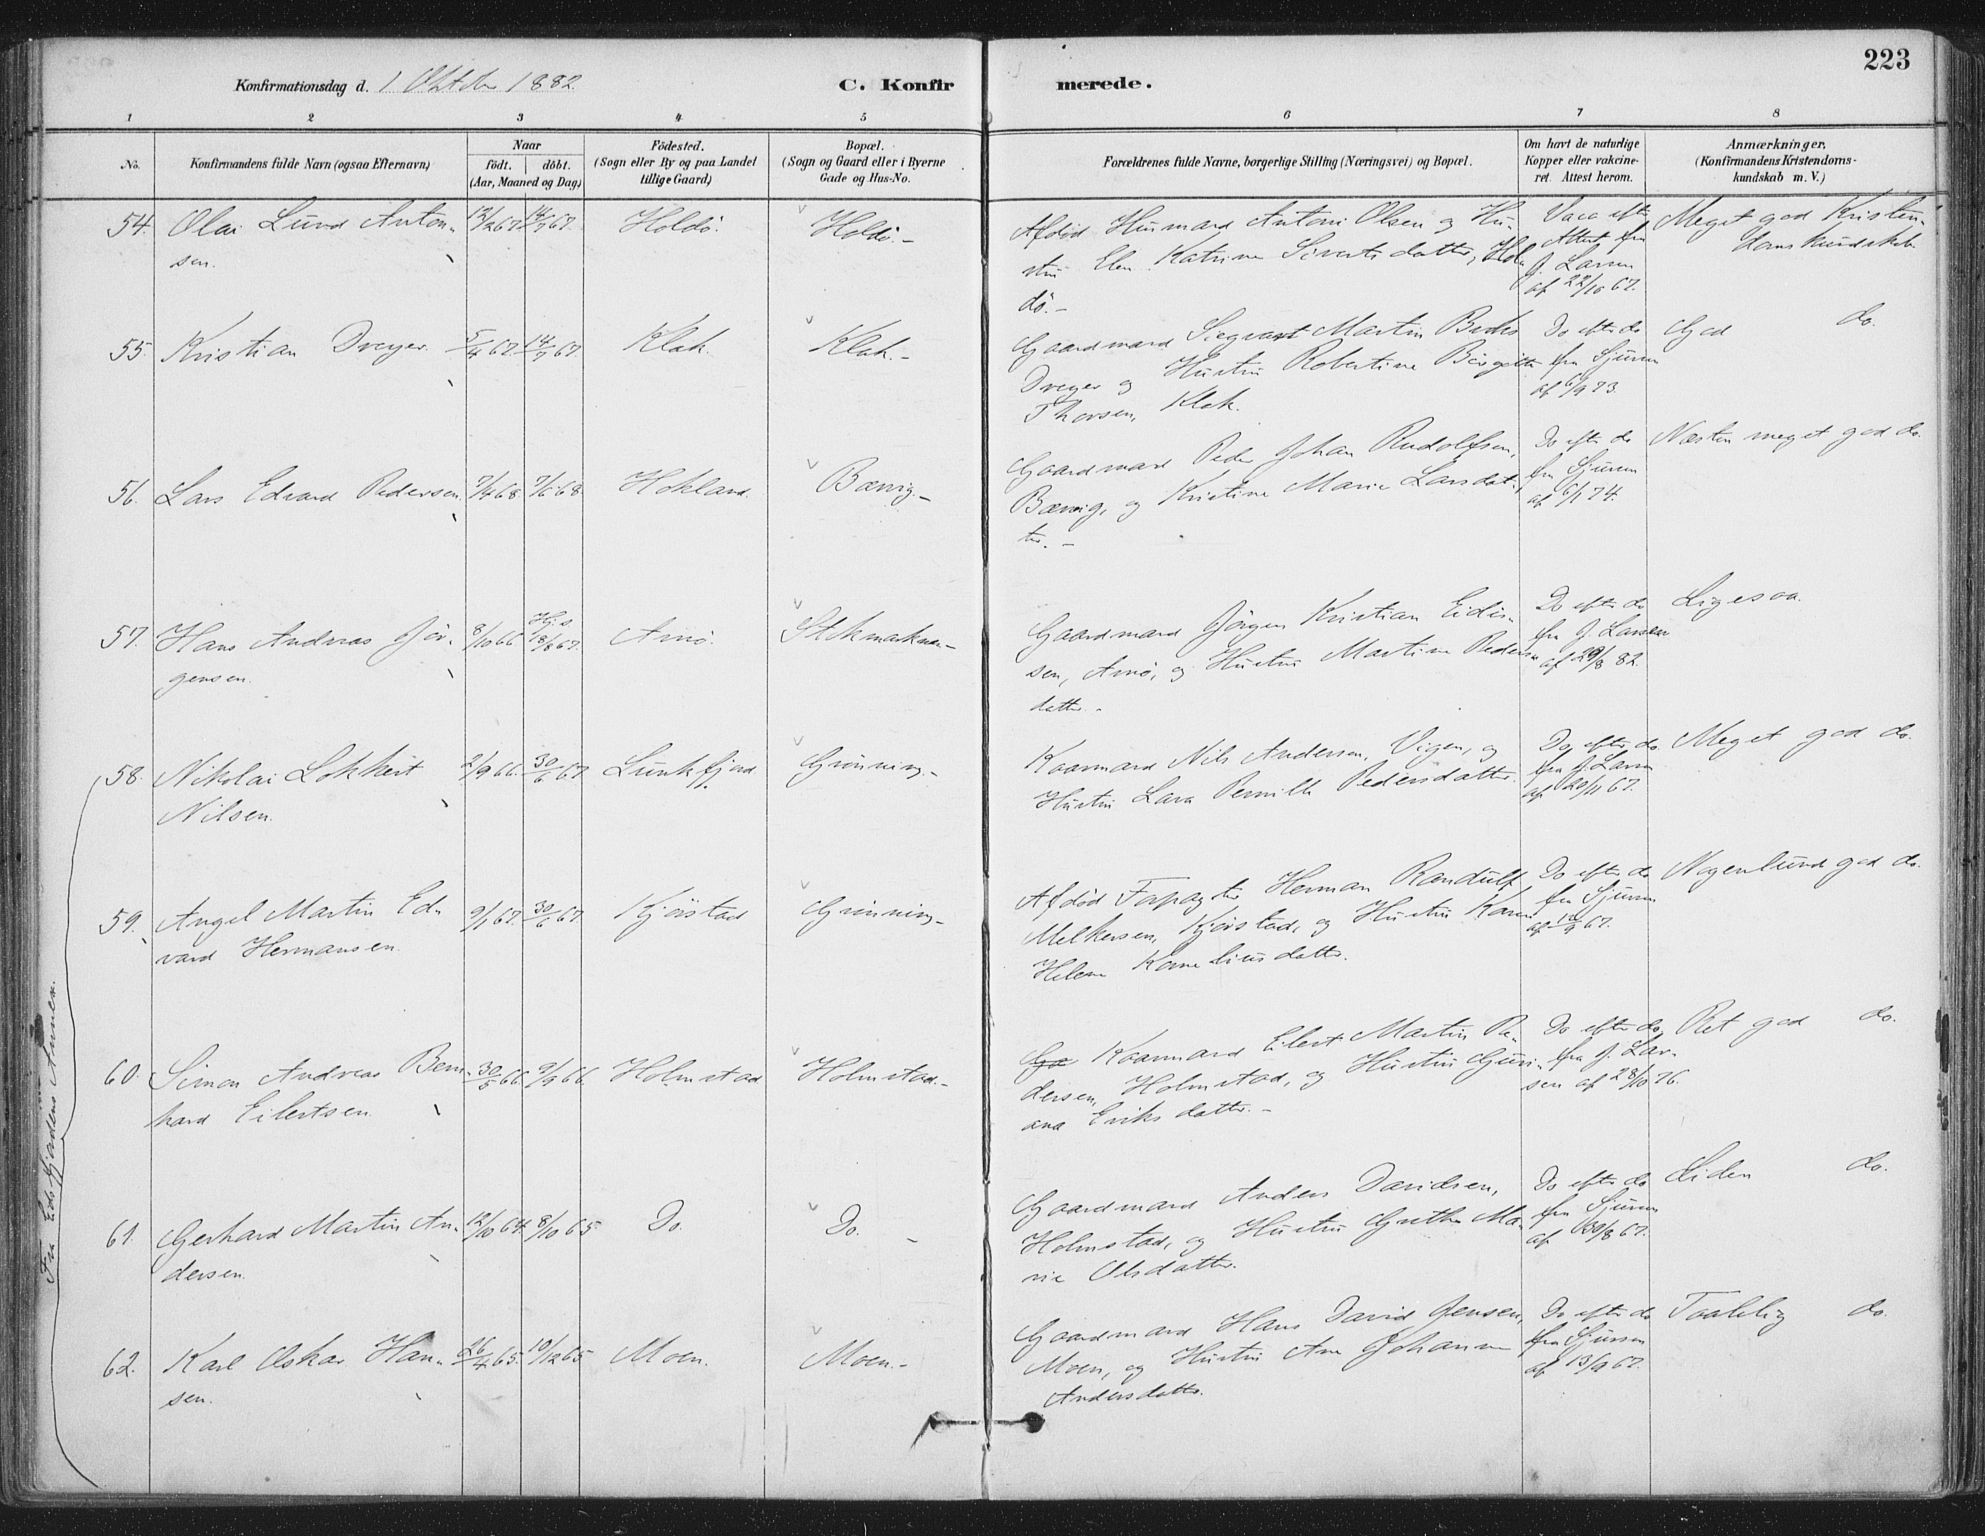 223
Konfirmationsdag d. 1 Oktober 1882.
C. Konfirmerede.
1 2 3 4 5 6 7 8
No.
Konfirmandens fulde Navn (ogsaa Efternavn)
Naar
födt. döbt.
(Aar, Maaned og Dag)
Födested.
(Sogn eller By og paa Landet
tillige Gaard)
Bopæl.
(Sogn og Gaard eller i Byerne
Gade og Hus-No.
Forældrenes fulde Navne, borgerlige Stilling (Næringsvei) og Bopæl.
Om havt de naturlige
Kopper eller vakcine-
ret. Attest herom.
Anmærkninger,
(Konfirmandens Kristendoms-
kundskab m. V.)
54. Olai Lund Anton-
sen.
12/2 67. 14/7 67. Holdö. Holdö.-
Afdød Husmand Antoni Olsen og Hu-
stru Elen Katrine Sivertsdatter, Hol
dö.-
Vacc efter
Attest fra
J. Larsen
af 22/10 67.
Meget god Kristen-
doms Kundskab
55. Kristian Dreyer. 5/4 67. 14/7 67. Klak. Klak.-
Gaardmand Siegvart Martin
Dreyer og Hustru Robertine Birgitte
Thorsen, Klak.
Do efter do
fra Sjursen
af 6/9 73.
God do.
56. Lars Edvard Pedersen 7/4 68. 7/6 68 Hokland. Bævig.-
Gaardmand Peder Johan Rudolfsen,
Bævig, og Kristine Marie Larsdat-
ter.-
Do efter do
fra Sjursen
af 6/1 74.
Næsten meget god do.
57. Hans Andreas Jör-
gensen.
8/10 66 Hj.s 18/8 67. Arnö. Stokmarknæs-
Gaardmand Jörgen Kristian Eidis-
sen, Arnö, og Hustru Martine Peders
datter.-
Do efter do
fra J. Larsen
af 29/8 82.
Ligesaa.
58. Nikolai Lokkert
Nilsen.
2/9 66. 30/6 67. Lunkfjord Grönning-
Kaarmand Nils Andersen, Vigen, og
Hustru Lava Pernille Pedersdatter.
Do efter do
fra J. Larsen
af 20/11 67.
Meget god do.
59. Angel Martin Ed-
vard Hermansen.
9/1 67. 30/6 67. Kjörstad Grönning-
Afdød Forpagter Herman Randulf
Melkersen, Kjörstad, og Hustru Karen
Helene Korneliusdatter.
Do efter do
fra Sjursen
af 12/9 67.
Nogenlunde god do.
60. Simon Andreas Bern-
hard Eilertsen.
30/5 66. 9/9 66. Holmstad Holmstad.-
Ga Kaarmand Eilert Martin Pe-
dersen, Holmstad, og Hustru Guri-
ana Eriksdatter.-
Do efter do
fra J. Lar-
sen af 28/10 76.
Ret god do.
61. Gerhard Martin An-
dersen.
12/10 64. 8/10 65 Do. Do. -
Gaardmand Anders Davidsen,
Holmstad, og Hustru Grethe Ma-
rie Olsdatter.
Do efter do
fra Sjursen
af 30/8 67.
Liden do.
62. Karl Oskar Han-
sen.
26/4 65. 10/12 65 Moen. Moen.-
Gaardmand Hans David Jensen,
Moen, og Hustru Ane Johanne
Andersdatter.
Do efter do
fra Sjursen
af 13/9 67.
Taalelig do.
Fra Eidsfjordens Annex.